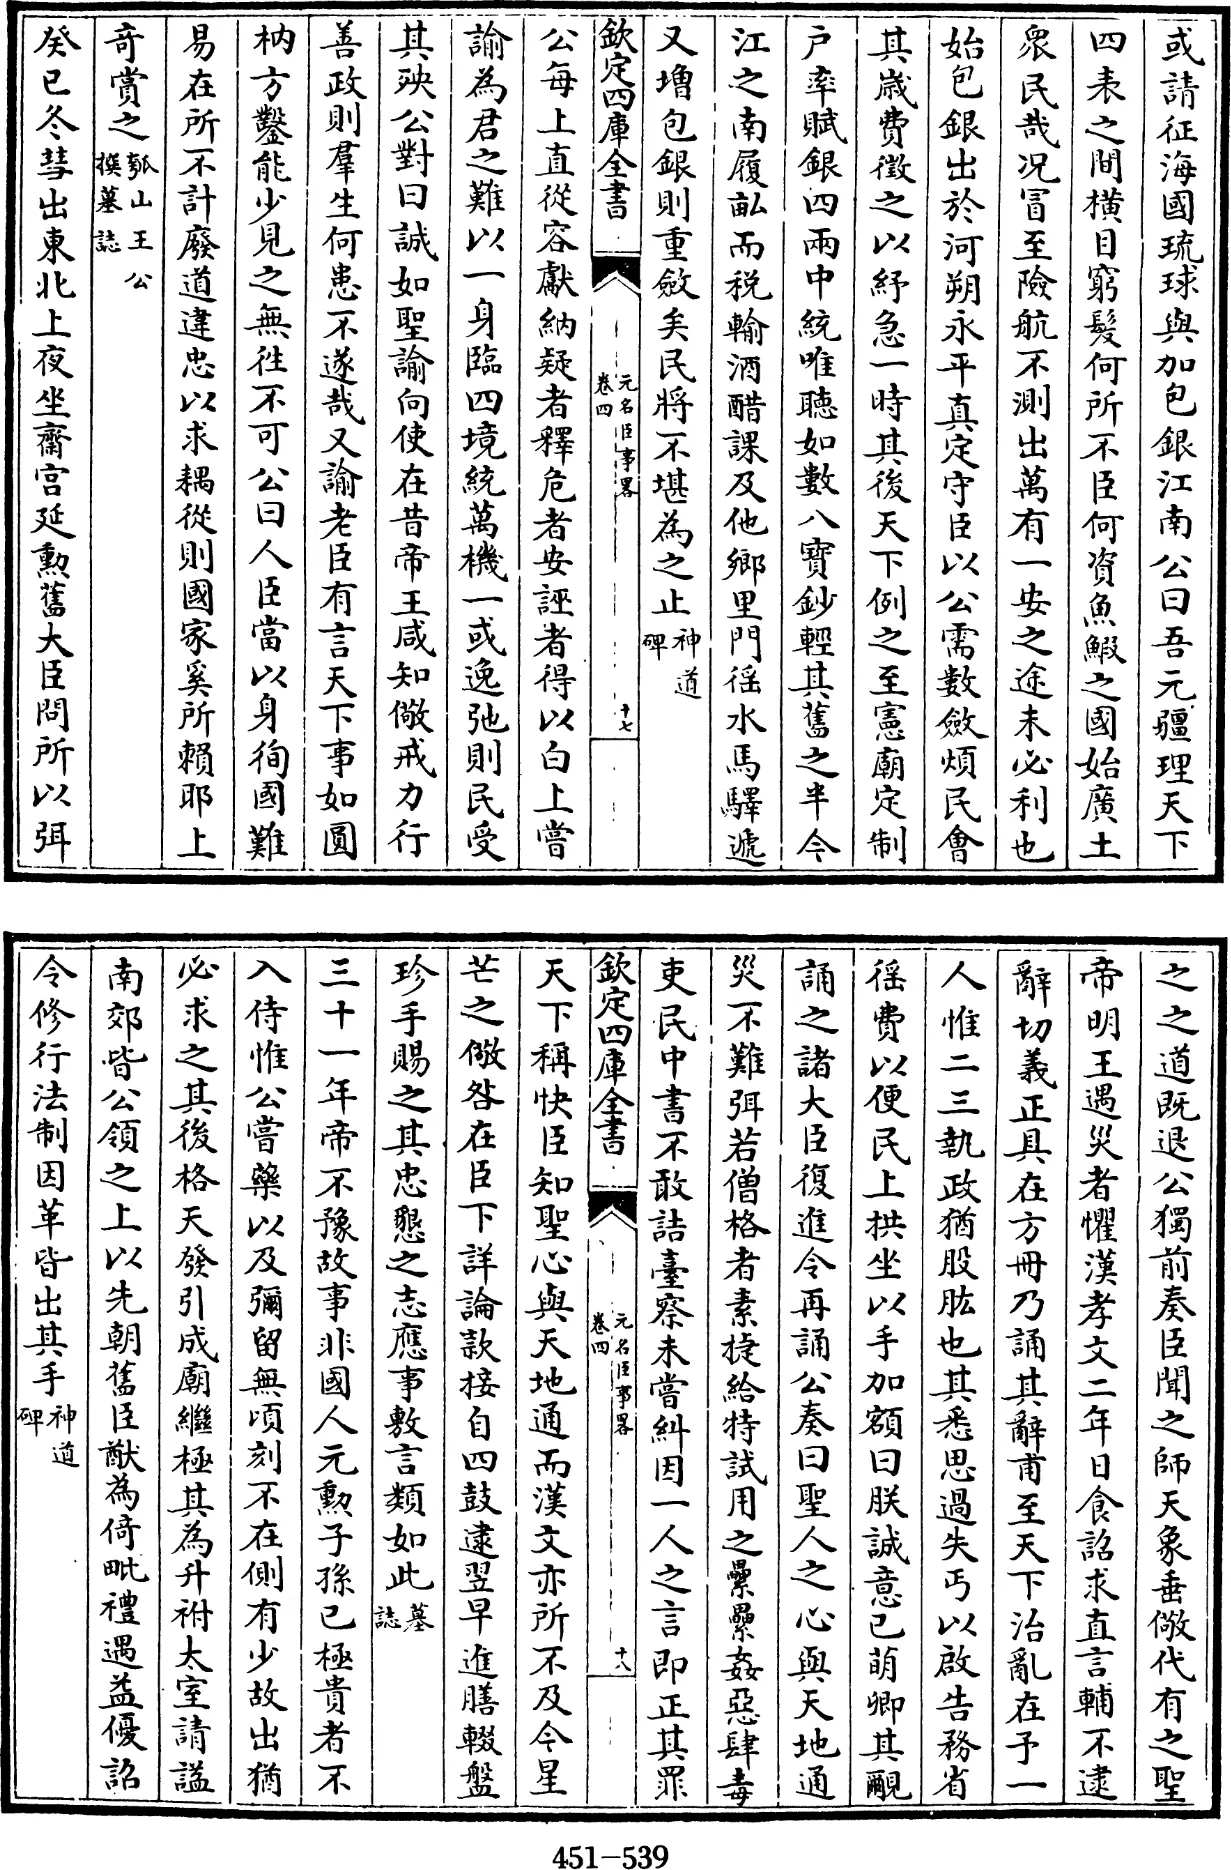 或請征海國琉球與加包銀江南公曰吾元疆理天下
四表之間橫目窮髮何所不臣何資魚鰕之國始廣土
衆民哉况冒至險航不測出萬有一安之途未必利也
始包銀出於河朔永平真定守臣以公需數斂煩民會
其歲費徵之以紓急一時其後天下例之至憲廟定制
户率賦銀四兩中統唯聴如數八寶鈔輕其舊之半今
江之南履畝而税輸酒醋課及他鄉里門徭水馬驛遞
又増包銀則重斂矣民將不堪為之止神道
碑
欽定四庫全書
元名臣事畧
卷四
十七
公每上直從容獻納疑者釋危者安誣者得以白上嘗
諭為君之難以一身臨四境統萬機一或逸弛則民受
其殃公對曰誠如聖諭向使在昔帝王咸知儆戒力行
善政則羣生何患不遂哉又諭老臣有言天下事如圓
枘方鑿能少見之無徃不可公曰人臣當以身徇國難
易在所不計廢道違忠以求耦從則國家奚所賴耶上
奇賞之瓠山王公
撰墓誌
癸巳冬彗出東北上夜坐齋宫延勲舊大臣問所以弭
之之道既退公獨前奏臣聞之師天象垂儆代有之聖
帝明王遇災者懼漢孝文二年日食詔求直言輔不逮
辭切義正具在方冊乃誦其辭甫至天下治亂在予一
人惟二三執政猶股肱也其悉思過失丐以啟告務省
徭費以便民上拱坐以手加額曰朕誠意已萌卿其覼
誦之諸大臣復進令再誦公奏曰聖人之心與天地通
災不難弭若僧格者素捷給特試用之纍纍姦惡肆毒
吏民中書不敢詰臺察未嘗糾因一人之言即正其罪
欽定四庫全書
元名臣事畧
卷四
十八
天下稱快臣知聖心與天地通而漢文亦所不及今星
芒之儆咎在臣下詳論款接自四鼓逮翌早進膳輟盤
珍手賜之其忠懇之志應事敷言類如此墓
誌
三十一年帝不豫故事非國人元勲子孫已極貴者不
入侍惟公嘗藥以及彌留無頃刻不在側有少故出猶
必求之其後格天發引成廟繼極其為升祔太室請諡
南郊皆公領之上以先朝舊臣猷為倚毗禮遇益優詔
令修行法制因革皆出其手神道
碑
451-539